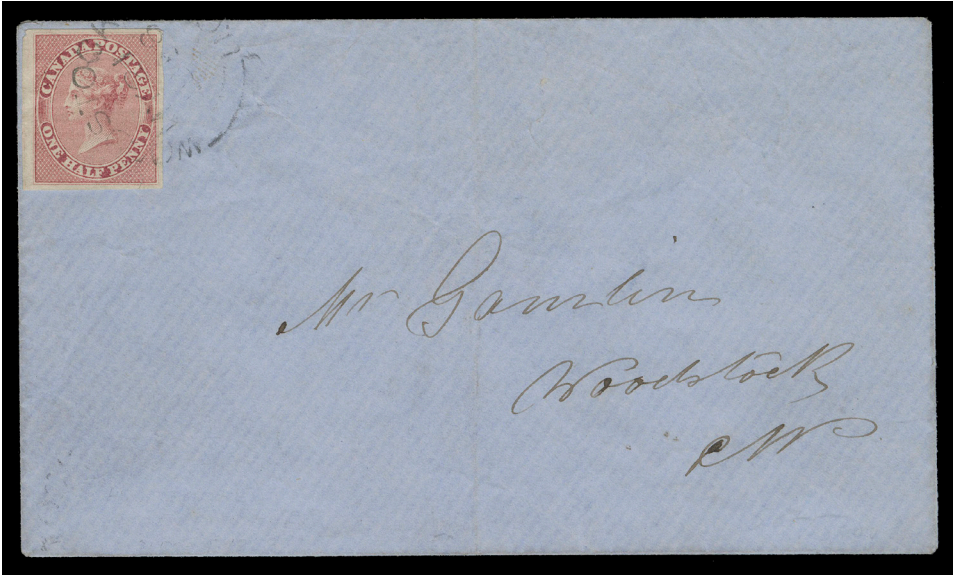 CANADA POSTAGE
ONE HALF PENNY
Mr Gamlin
Woodstock
CW